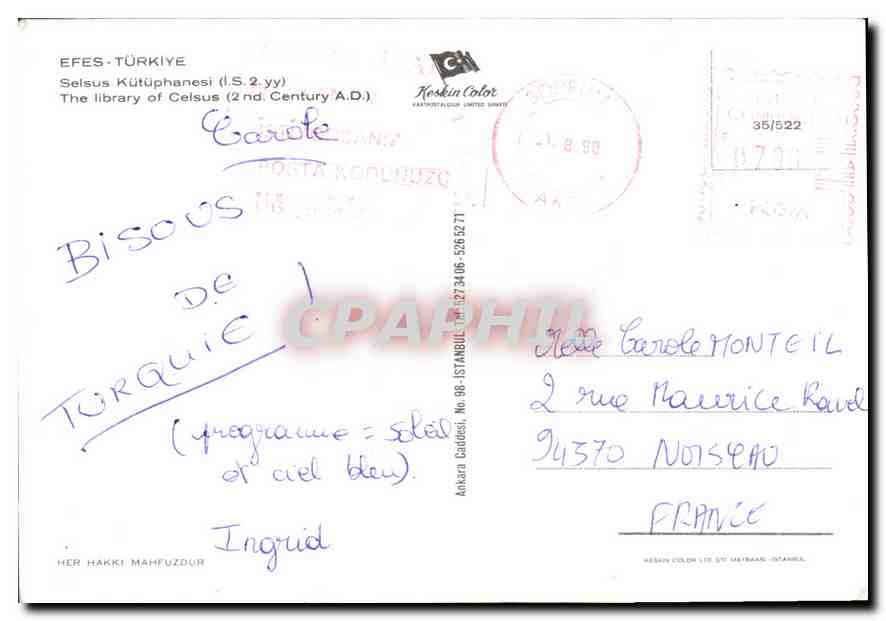 EFES - TÜRKİYE
Selsus Kütüphanesi (İ.S. 2. yy)
The library of Celsus (2 nd. Century A.D.)
Keskin Color
KARTPOSTALCILIK LIMITED ŞİRKETİ
8.90
35/522
POSTA KODUNUZU
Carole
BISOUS
DE
TURQUIE !
(programme = soleil
et ciel bleu).
Ingrid
HER HAKKI MAHFUZDUR
Ankara Caddesi, No. 98 - İSTANBUL Tel: 5273406 - 5265271
CPAPHIL
Melle Carole MONTEIL
2 rue Maurice Ravel
94370 NOISEAU
FRANCE
KESKIN COLOR LTD. ŞTİ MATBAASI - İSTANBUL